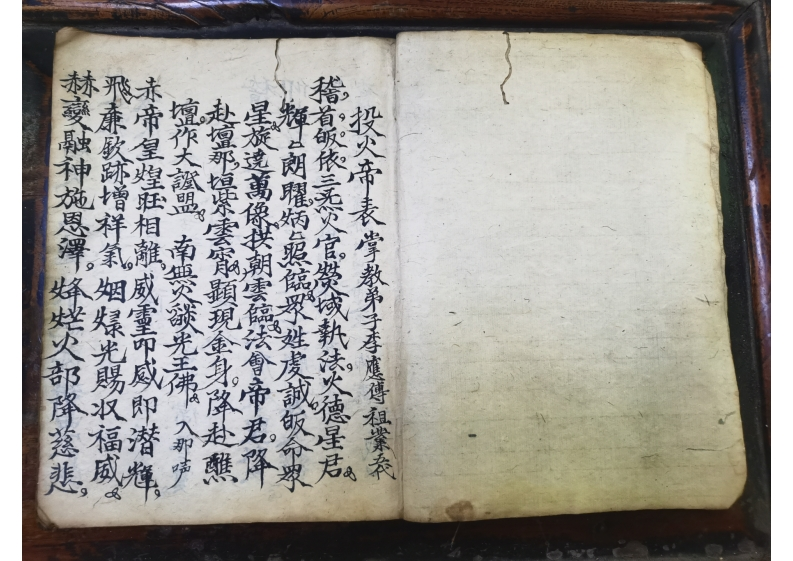 投火帝表 掌教弟子李應傳祖業五代
稽首皈依三炁火官。熒域執法。火德星君。
輝〻朗曜。炳〻照臨。眾姓虔誠皈命眾
星旋遶。萬像拱朝。雲臨法會。帝君。降
赴壇那。垣紫雲霄。顯現金身。降赴醮
壇。作大證盟。 南無火燄光王佛。 入那吽
赤帝皇煌旺相離。威靈叩感即潜輝。
飛廉欽跡增祥氣。烟 光賜収福威。
赫變融神施恩澤。烽 火部降慈悲。